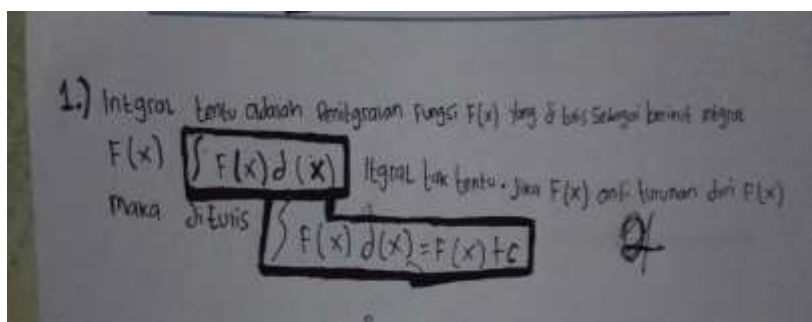 1.) Integral tentu adalah Penitgralan Fungsi F(x) yang di tulis Sebagai berikut integral
F(x) ∫ F(x) d (x) Itgral tak tentu. Jika F(x) anti turunan dari F(x)
maka ditulis ∫ F(x) d(x) = F(x) + c